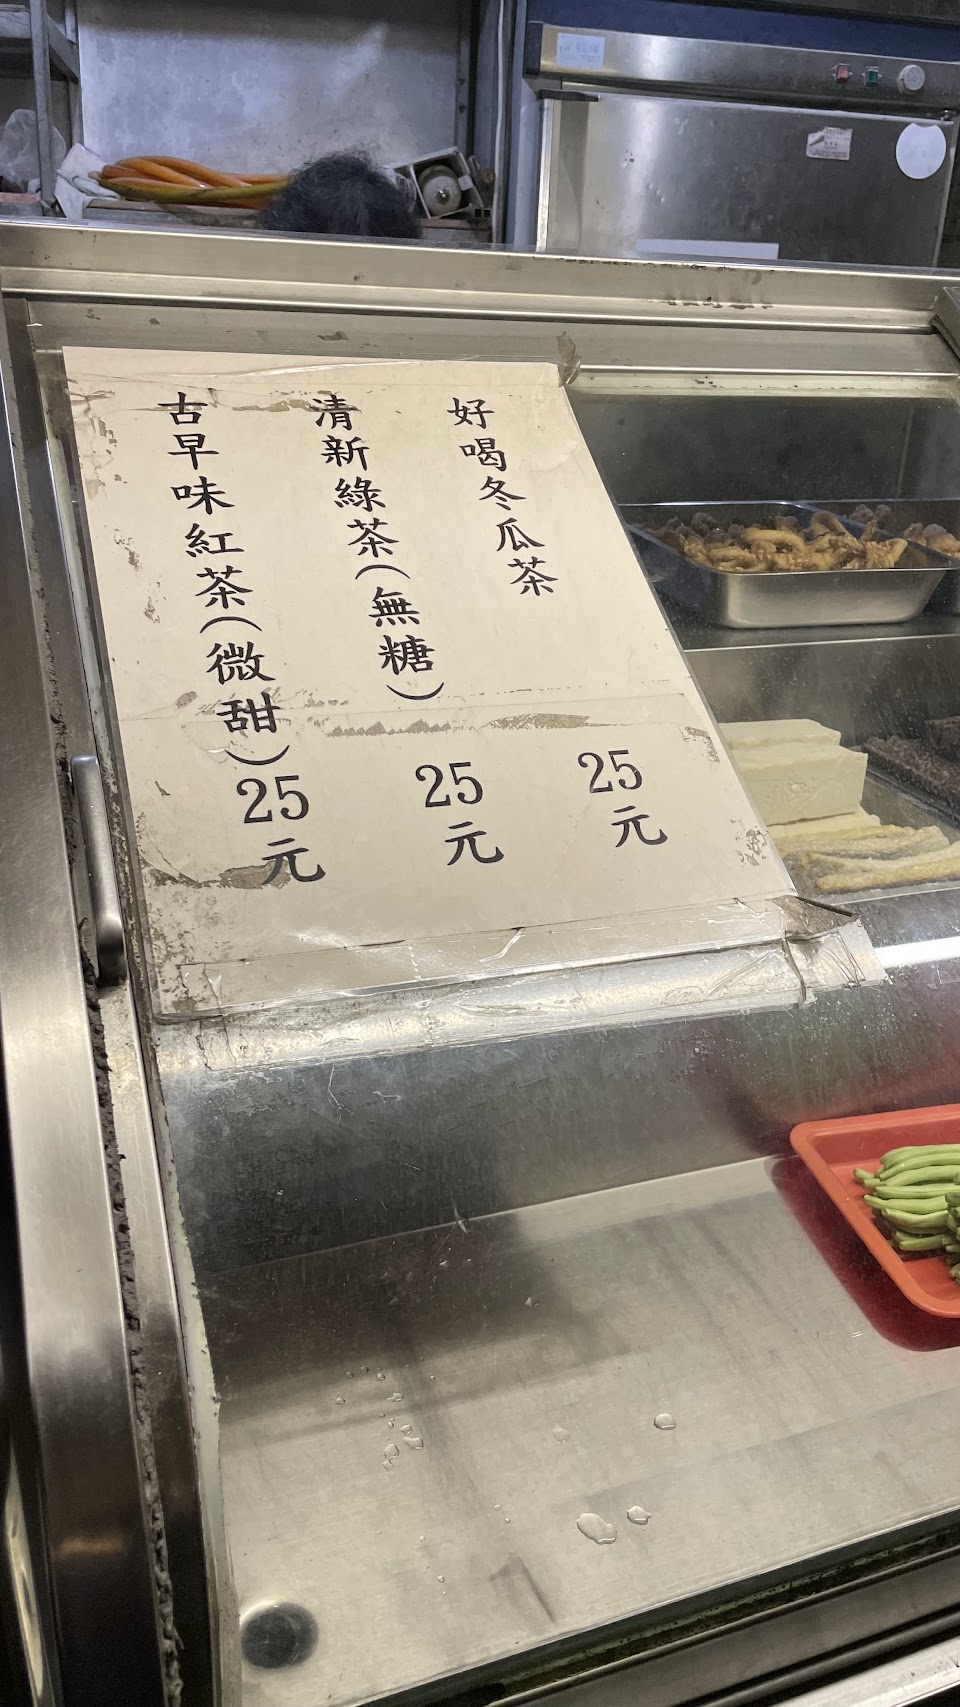 好喝冬瓜茶
25元
清新綠茶(無糖)
25元
古早味紅茶(微甜)
25元